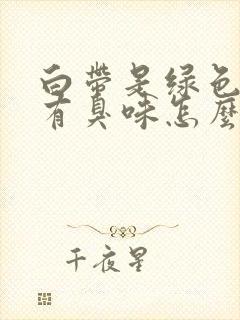 白带是绿色
有臭味怎麽
千夜星